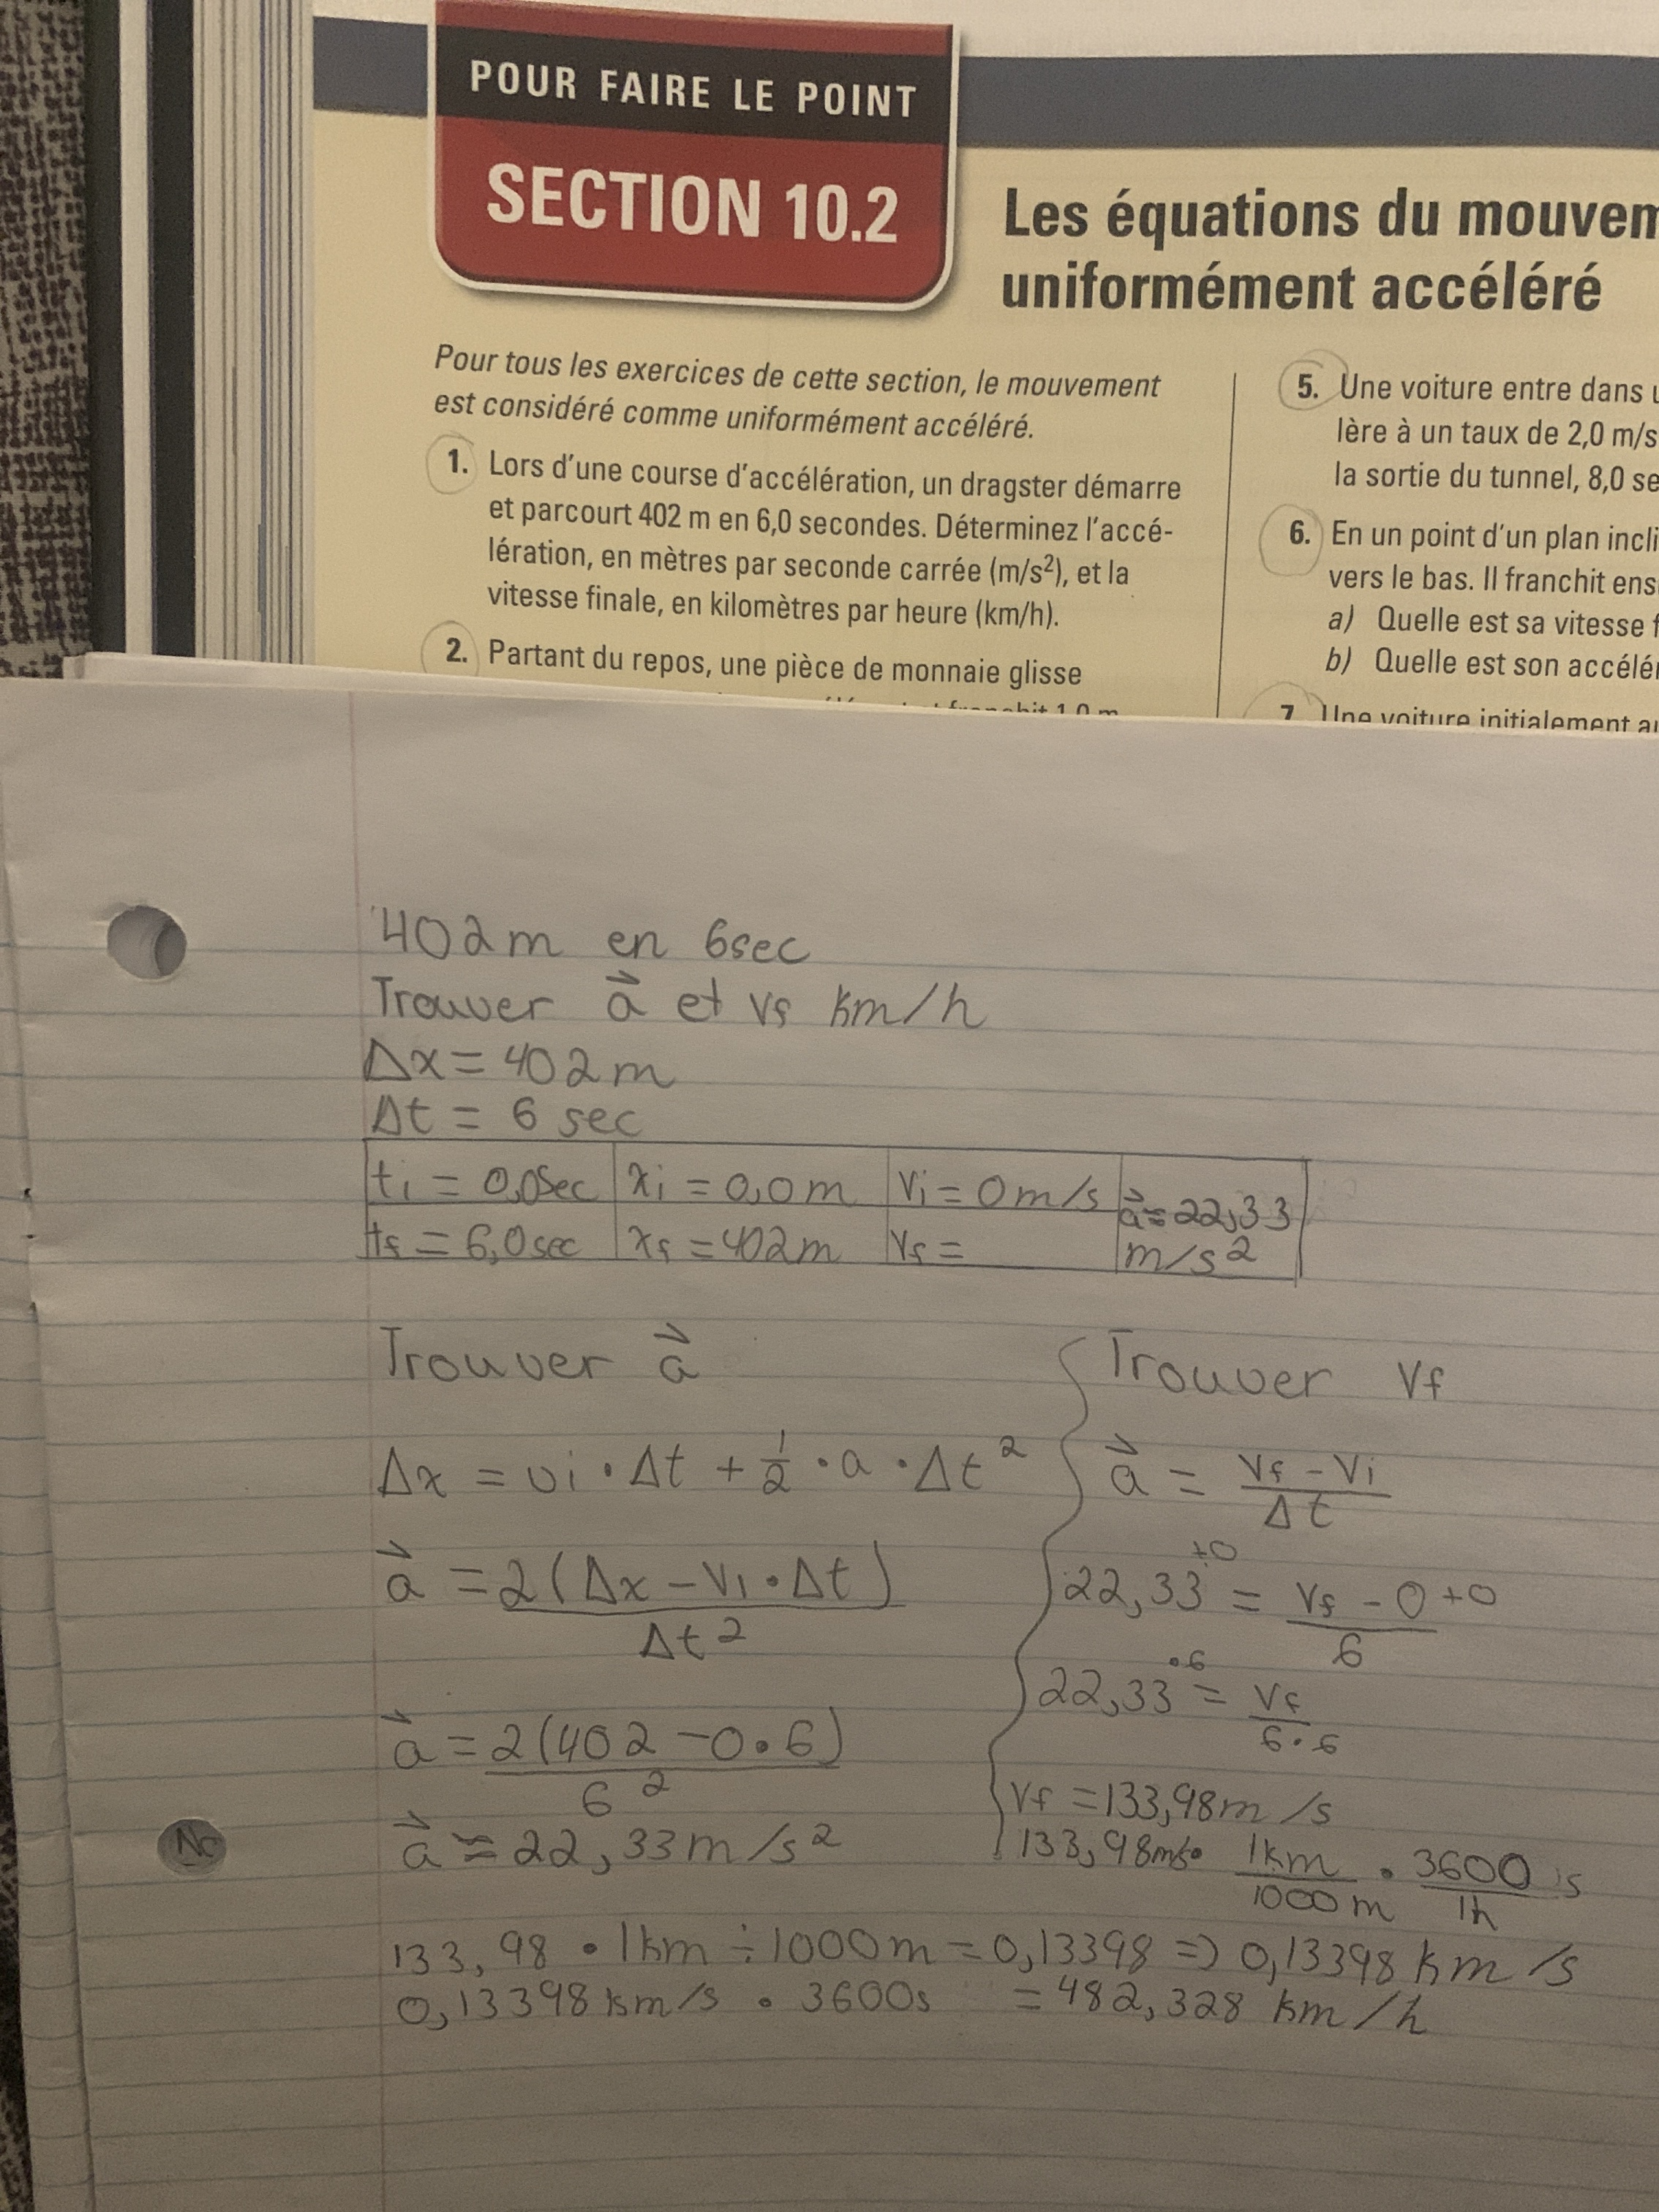 POUR FAIRE LE POINT
SECTION 10.2
Les équations du mouvem
uniformément accéléré
Pour tous les exercices de cette section, le mouvement
est considéré comme uniformément accéléré.
1. Lors d'une course d'accélération, un dragster démarre
et parcourt 402 m en 6,0 secondes. Déterminez l'accé-
lération, en mètres par seconde carrée (m/s²), et la
vitesse finale, en kilomètres par heure (km/h).
2. Partant du repos, une pièce de monnaie glisse
1,0 m
5. Une voiture entre dans u
lère à un taux de 2,0 m/s
la sortie du tunnel, 8,0 se
6. En un point d'un plan incli
vers le bas. Il franchit ens
a) Quelle est sa vitesse f
b) Quelle est son accélér
7. Une voiture initialement au
402m en 6sec
Trouver a⃗ et vf km/h
Δx = 402m
Δt = 6 sec
ti = 0,0sec xi = 0,0m Vi = 0m/s a⃗≈22,33
tf = 6,0sec xf = 402m Vf = m/s²
Trouver a⃗
Δx = vi • Δt + 1/2 • a • Δt²
a⃗ = 2(Δx - Vi • Δt) / Δt²
a⃗ = 2(402 - 0 • 6) / 6²
a⃗ ≈ 22,33m/s²
Trouver Vf
a⃗ = Vf - Vi / Δt
22,33 +0 = Vf - 0 +0 / 6
22,33 •6 = Vf / 6 • 6
Vf = 133,98m/s
133,98m/s • 1km / 1000m • 3600 s / 1h
133,98 • 1km ÷ 1000m = 0,13398 => 0,13398 km/s
0,13398km/s • 3600s = 482,328 km/h
Nc